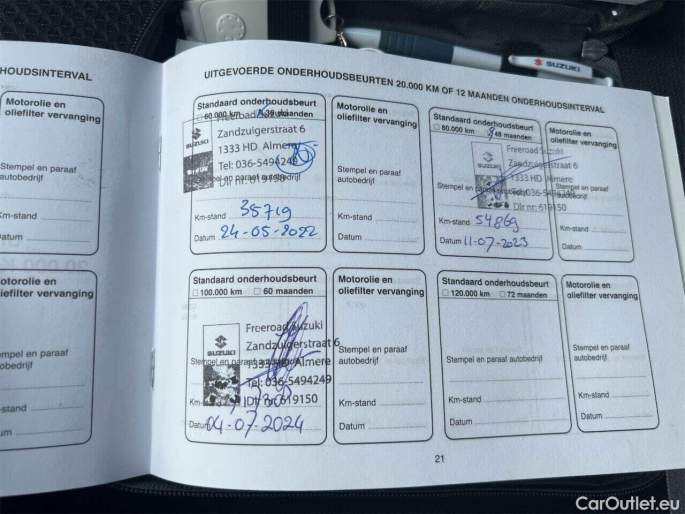 HOUDSINTERVAL
Motorolie en
oliefilter vervanging
Stempel en paraaf
autobedrijf
Km-stand
Datum
otorolie en
iefilter vervanging
empel en paraaf
obedrijf
-stand
um
SUZUKI
UITGEVOERDE ONDERHOUDSBEURTEN 20.000 KM OF 12 MAANDEN ONDERHOUDSINTERVAL
Standaard onderhoudsbeurt
60.000 km 36 maanden
SUZUKI
Zandzuigerstraat 6
1333 HD Almere
Tel: 036-5494249
Dlr nr: 619150
Km-stand 38719
Datum 24-05-2022
Motorolie en
oliefilter vervanging
Stempel en paraaf
autobedrijf
Km-stand
Datum
Standaard onderhoudsbeurt
80.000 km 48 maanden
Freeroad Suzuki
Zandzuigerstraat 6
1333 HD Almere
Tel: 036-5494249
Dlr nr: 619150
Km-stand 54869
Datum 11-07-2023
Motorolie en
oliefilter vervanging
Stempel en paraaf
autobedrijf
Km-stand
Datum
Standaard onderhoudsbeurt
100.000 km 60 maanden
SUZUKI
Freeroad Suzuki
Zandzuigerstraat 6
1333 HD Almere
Stempel en paraaf
Tel: 036-5494249
Dlr nr: 619150
Km-
Datum 04-07-2024
Motorolie en
oliefilter vervanging
Stempel en paraaf
autobedrijf
Km-stand
Datum
Standaard onderhoudsbeurt
120.000 km 72 maanden
Stempel en paraaf autobedrijf
Km-stand
Datum
Motorolie en
oliefilter vervanging
Stempel en paraaf
autobedrijf
Km-stand
Datum
21
CarOutlet.eu